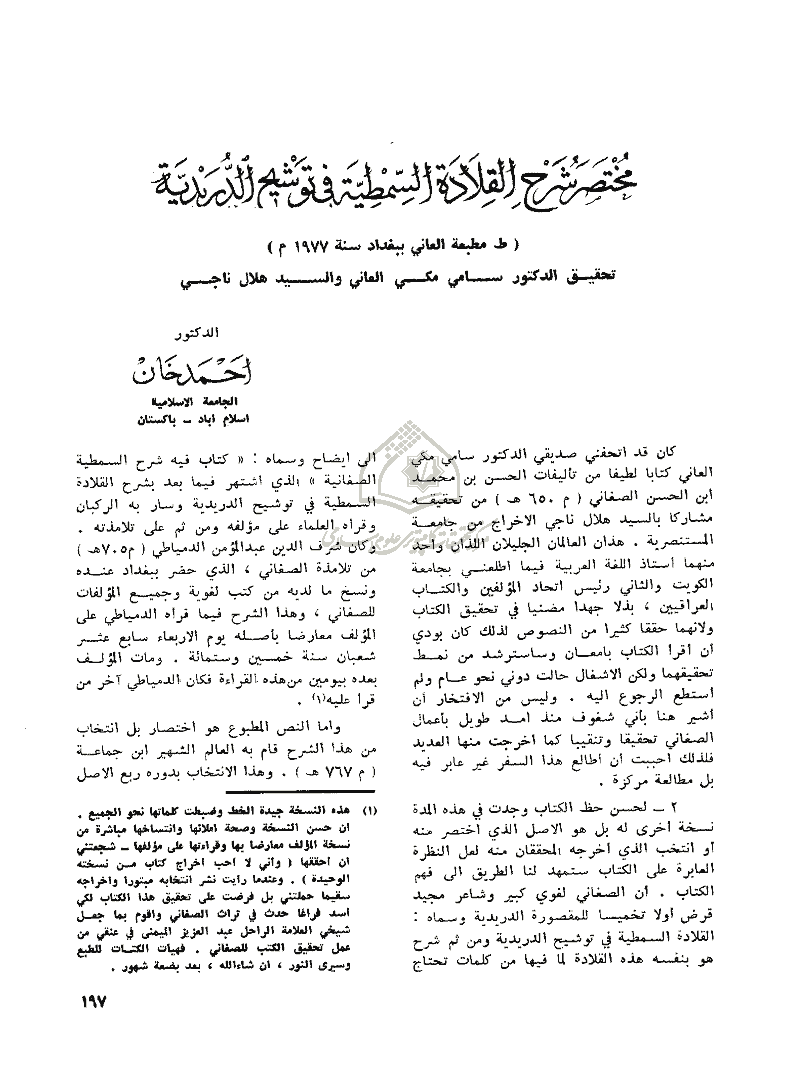 مُختصَر شَرح القِلادَة السِّمطيَّة فى توشيح الدُّريديَّة
( ط مطبعة العاني ببغداد سنة ١٩٧٧ م )
تحقيــق الدكتور ســـامي مكــي العاني والســـيد هلال ناجــي
الدكتور
احمد خان
الجامعة الاسلامية
اسلام آباد ــ باكستان
كان قد اتحفني صديقي الدكتور سامي مكي
العاني كتابا لطيفا من تأليفات الحسن بن محمـد
ابن الحسن الصفاني ( م ٦٥٠ هـ ) من تحقيقـه
مشاركا بالسيد هلال ناجي الاخراج من جامعـة
المستنصرية . هذان العالمان الجليلان اللذان واحد
منهما أستاذ اللغة العربية فيما اطلعنـي بجامعة
الكويت والثاني رئيس اتحاد المؤلفين والكتـاب
العراقيين ، بذلا جهدا مضنيا في تحقيق الكتاب
ولانهما حققا كثيرا من النصوص لذلك كان بودي
أن اقرأ الكتاب بامعـان وساسترشد من نمـط
تحقيقهما ولكن الاشغال حالت دوني نحو عـام ولم
استطع الرجوع اليه . وليس من الافتخار أن
أشير هنا بأني شغوف منذ امـد طويل بأعمال
الصفاني تحقيقا وتنقيبا كما اخرجت منها العديد
فلذلك احببت أن أطالع هذا السفر غير عابر فيه
بل مطالعة مركزة .
٢ ــ لحسن حظ الكتاب وجدت في هذه المدة
نسخة أخرى له بل هو الاصل الذي اختصر منه
أو انتخب الذي أخرجه المحققان منه لعل النظرة
العابرة على الكتاب ستمهد لنا الطريق الى فهم
الكتاب . أن الصفاني لغوي كبير وشاعر مجيد
قرض أولا تخميسا للمقصورة الدريدية وسماه :
القلادة السمطية في توشيح الدريدية ومن ثم شرح
هو بنفسه هذه القلادة لما فيها من كلمات تحتاج
الى ايضاح وسماه : « كتاب فيه شرح السمطية
الصفانية » الذي اشتهر فيما بعد بشرح القلادة
السمطية في توشيح الدريدية وسار به الركبان
وقراه العلماء على مؤلفه ومن ثم على تلامذته .
وكان شرف الدين عبدالمؤمن الدمياطي ( م٧٠٥هـ )
من تلامذة الصفاني ، الذي حضر ببغداد عنـده
ونسخ ما لديه من كتب لغوية وجميـع المؤلفات
للصفاني ، وهذا الشرح فيما قراه الدمياطي على
المؤلف معارضا بأصـله يوم الاربعاء سابع عشـر
شعبان سنة خمسين وستمائة . ومات المؤلـف
بعده بيومين من هذه القراءة فكان الدمياطي آخر من
قرأ عليه(١) .
واما النص المطبوع هو اختصار بل انتخاب
من هذا الشرح قام به العالم الشهير ابن جماعـة
( م ٧٦٧ هـ ) . وهذا الانتخاب بدوره ربع الاصل
(١) هذه النسخة جيدة الخط وضبطت كلماتها نحو الجميع .
ان حسن النسخة وصحة املائها وانتساخها مباشرة من
نسخة المؤلف معارضا بها وقراءتها على مؤلفها ــ شجعتني
ان احققها ( وأني لا احب اخراج كتاب مـن نسخته
الوحيدة ) . وعندما رايت نشر انتخابه مبتورا واخراجه
سقيما حملتني بل فرضت على تحقيق هذا الكتاب لكي
أسد فراغا حدث في تراث الصفاني واقوم بما جعـل
شيخي العلامة الراحل عبد العزيز الميمني في عنقي من
عمل تحقيق الكتب للصفاني . فهيات الكتـاب للطبع
وسيرى النور ، ان شاءالله ، بعد بضعة شهور .
١٩٧